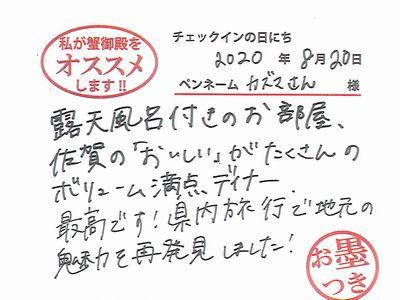 私が蟹御殿を
オススメ
します!!
チェックインの日にち
2020 年 8月20日
ペンネーム カズマさん 様
露天風呂付きのお部屋、
佐賀の「おいしい」がたくさんの
ボリューム満点ディナー.
最高です!県内旅行で地元の
魅力を再発見しました!
お墨
つき